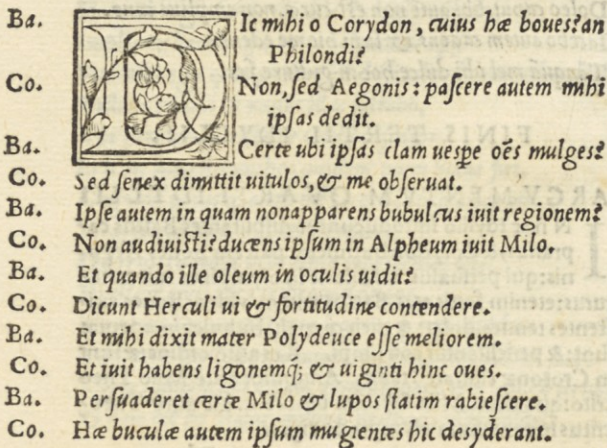 Ba. DIc mihi o Corydon, cuius hæ boues? an
Philondi?
Co. Non, sed Aegonis: pascere autem mihi
ipsas dedit.
Ba. Certe ubi ipsas clam uespe oẽs mulges?
Co. Sed senex dimittit uitulos, & me obseruat.
Ba. Ipse autem in quam nonapparens bubulcus iuit regionem?
Co. Non audiuisti? ducens ipsum in Alpheum iuit Milo.
Ba. Et quando ille oleum in oculis uidit?
Co. Dicunt Herculi ui & fortitudine contendere.
Ba. Et mihi dixit mater Polydeuce esse meliorem.
Co. Et iuit habens ligonemq́; & uiginti hinc oues.
Ba. Persuaderet certe Milo & lupos statim rabiescere.
Co. Hæ buculæ autem ipsum mugientes hic desyderant.